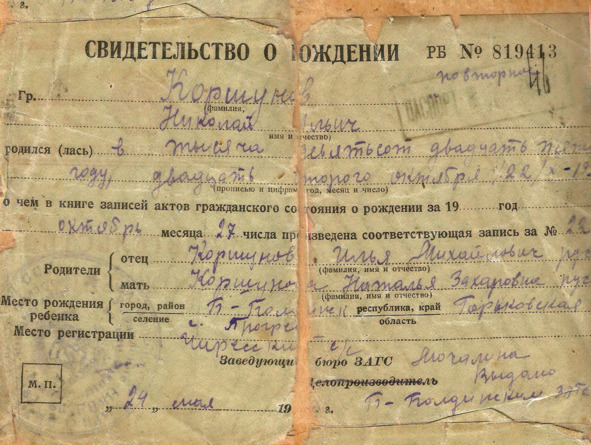 г.
СВИДЕТЕЛЬСТВО О РОЖДЕНИИ РБ № 819413
повторное
Гр. Коршунов
(фамилия,
Николай Ильич
имя и отчество)
родился (лась) в тысяча девятьсот двадцать
году, двадцать второго октября 22/X-19
(прописью и цифрами год, месяц и число)
о чем в книге записей актов гражданского состояния о рождении за 19 год
октябрь месяца 27 числа произведена соответствующая запись за № 22
Родители
отец Коршунов Илья Михайлович рус
(фамилия, имя и отчество)
мать Коршунова Наталья Захаровна рус
(фамилия, имя и отчество)
Место рождения ребенка
город, район Б-Болдинск республика, край Горьковская
селение область
Место регистрации с/с
Заведующий бюро ЗАГС
М. П.
Делопроизводитель Выдано
"24" мая 19 г. Б-Болдинским